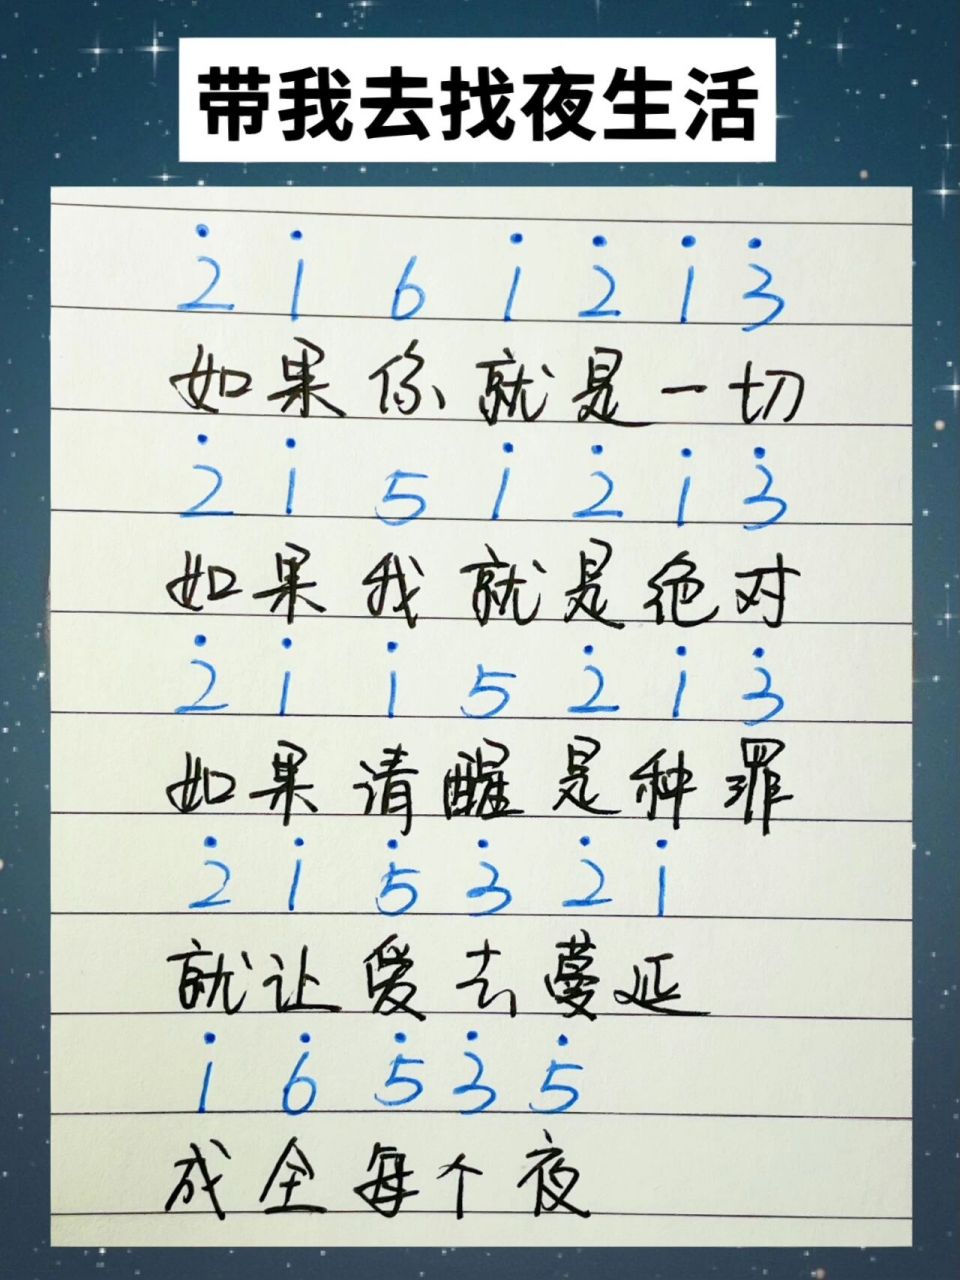 带我去找夜生活
2̇ 1̇ 6 1̇ 2̇ 1̇ 3̇
如果你就是一切
2̇ 1̇ 5 1̇ 2̇ 1̇ 3̇
如果我就是绝对
2̇ 1̇ 1̇ 5 2̇ 1̇ 3̇
如果清醒是种罪
2̇ 1̇ 5̇ 3̇ 2̇ 1̇
就让爱去蔓延
1̇ 6̇ 5̇ 3̇ 5̇
成全每个夜